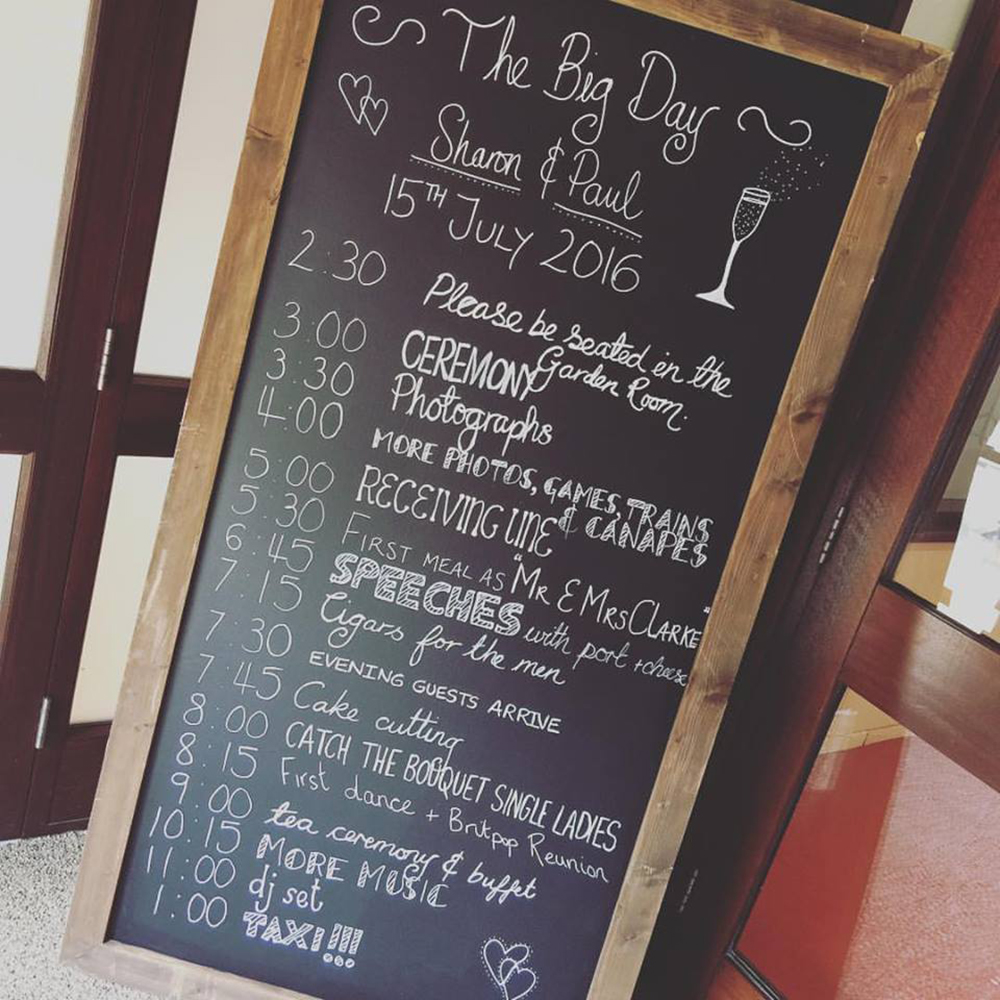 The Big Day
Sharon & Paul
15TH July 2016
2:30 Please be seated in the
Garden Room.
3:00 CEREMONY
3:30 Photographs
4:00 MORE PHOTOS, GAMES, TRAINS
& CANAPES
5:00 RECEIVING LINE
5:30 FIRST MEAL AS "MR & MRS CLARKE"
6:45 SPEECHES with port + cheese
7:15 Cigars for the men
7:30 EVENING GUESTS ARRIVE
7:45 Cake cutting
8:00 CATCH THE BOUQUET SINGLE LADIES
8:15 First dance + Britpop Reunion
9:00 tea ceremony & buffet
10:15 MORE MUSIC
11:00 dj set
1:00 TAXI!!!